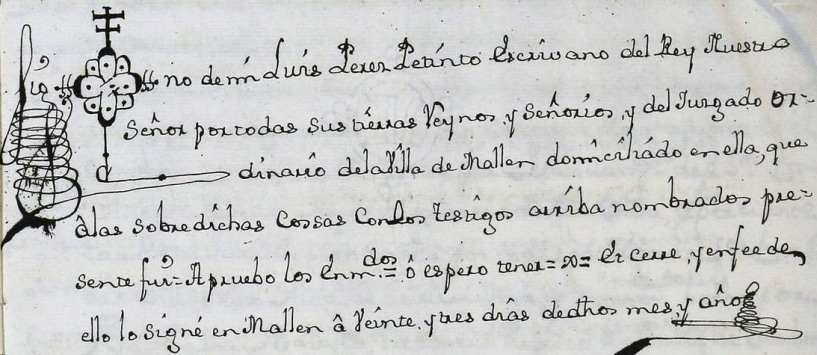 Sig no de mi Luis Perez Petinto Escrivano del Rey Nuestro
Señor por todas sus tierras Reynos, y Señorios, y del Juzgado or=
dinario dela Villa de Mallen domiciliado en ella, que
â las sobredichas Cossas Con los Testigos arriba nombrados pre=
sente fui= Apruebo los Enm.dos= ô espero tener= = Et cerre, y enfee de
ello lo Signé en Mallen â Veinte, y tres dias de dhos mes, y año